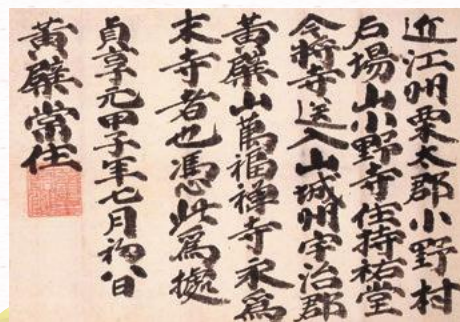 近江州栗太郡小野村
石場山小野寺住持祐堂
今將寺送入山城州宇治郡
黄檗山萬福禅寺永為
末寺者也馮此為據
貞享元甲子年七月初八日
黄檗常住